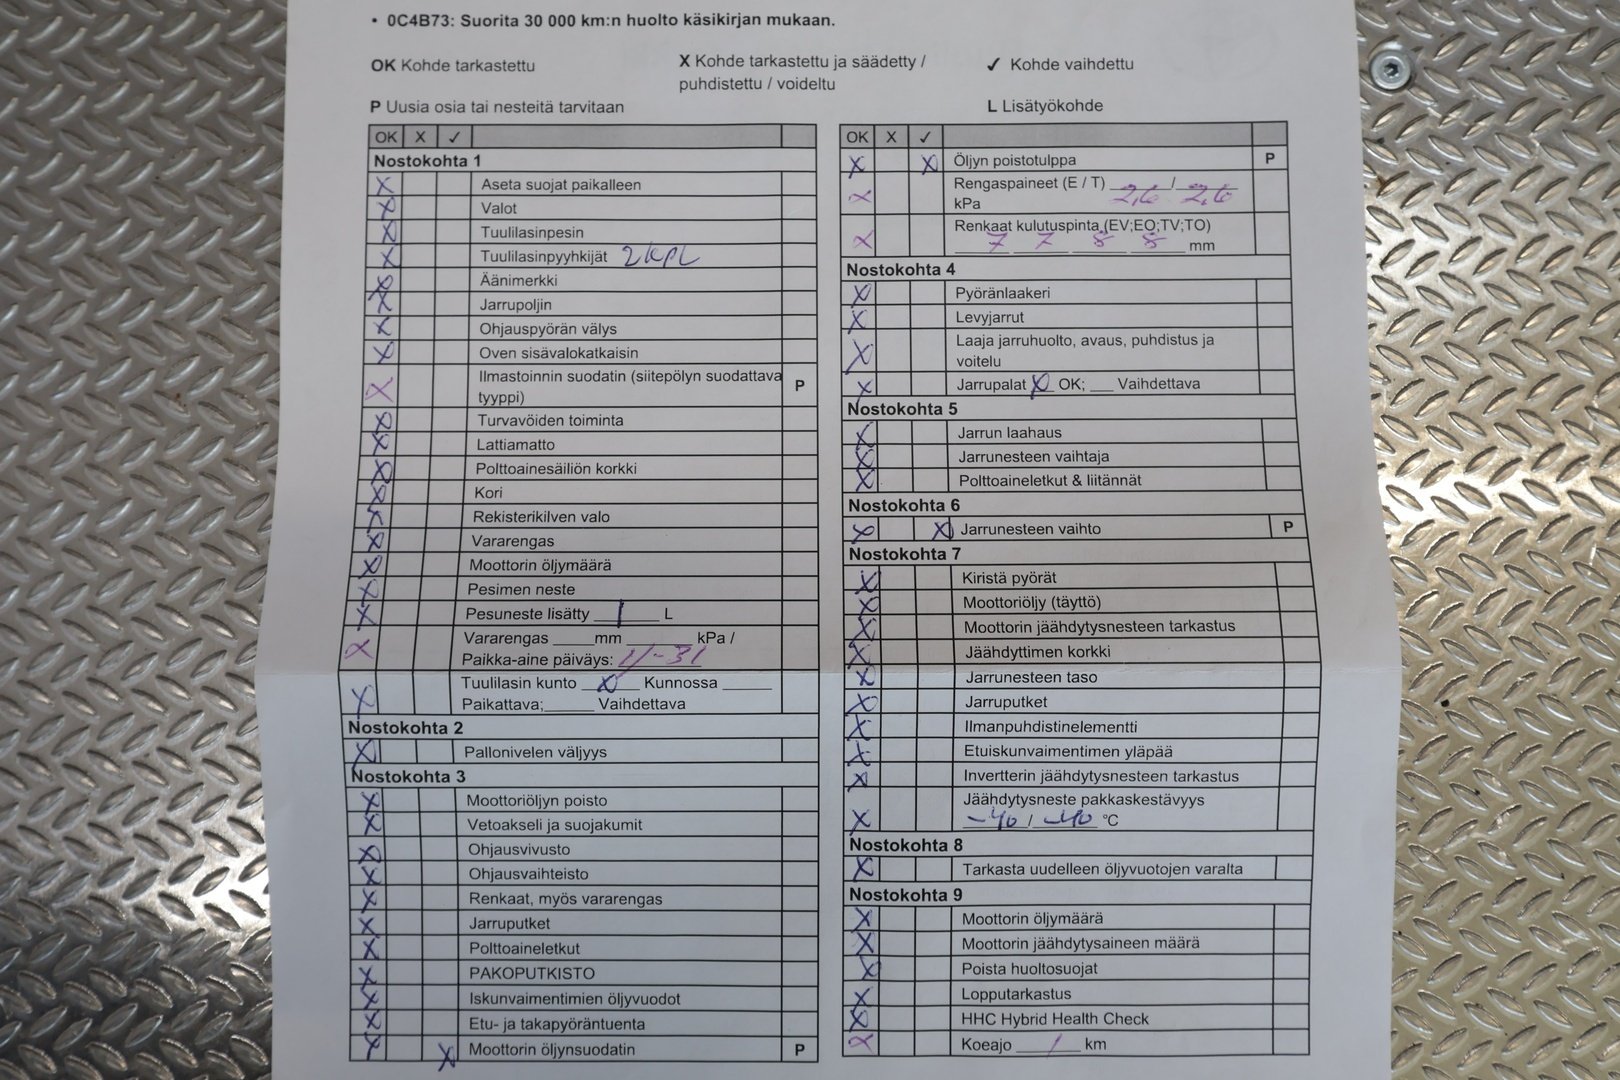 • 0C4B73: Suorita 30 000 km:n huolto käsikirjan mukaan.
OK Kohde tarkastettu
X Kohde tarkastettu ja säädetty /
puhdistettu / voideltu
✓ Kohde vaihdettu
P Uusia osia tai nesteitä tarvitaan
L Lisätyökohde
OK X ✓
Nostokohta 1
X Aseta suojat paikalleen
X Valot
X Tuulilasinpesin
X Tuulilasinpyyhkijät 2 KPL
X Äänimerkki
X Jarrupoljin
X Ohjauspyörän välys
X Oven sisävalokatkaisin
X Ilmastoinnin suodatin (siitepölyn suodattava P
tyyppi)
X Turvavöiden toiminta
X Lattiamatto
X Polttoainesäiliön korkki
X Kori
X Rekisterikilven valo
X Vararengas
X Moottorin öljymäärä
X Pesimen neste
X Pesuneste lisätty 1 L
X Vararengas ____mm ______ kPa /
Paikka-aine päiväys: 11-31
X Tuulilasin kunto X Kunnossa _____
Paikattava;_____ Vaihdettava
Nostokohta 2
X Pallonivelen väljyys
Nostokohta 3
X Moottoriöljyn poisto
X Vetoakseli ja suojakumit
X Ohjausvivusto
X Ohjausvaihteisto
X Renkaat, myös vararengas
X Jarruputket
X Polttoaineletkut
X PAKOPUTKISTO
X Iskunvaimentimien öljyvuodot
X Etu- ja takapyöräntuenta
X X Moottorin öljynsuodatin P
OK X ✓
X X Öljyn poistotulppa P
X Rengaspaineet (E / T) 2,6 / 2,6
kPa
X Renkaat kulutuspinta (EV;EO;TV;TO)
7 7 8 8 mm
Nostokohta 4
X Pyöränlaakeri
X Levyjarrut
X Laaja jarruhuolto, avaus, puhdistus ja
voitelu
X Jarrupalat X OK; ___ Vaihdettava
Nostokohta 5
X Jarrun laahaus
X Jarrunesteen vaihtaja
X Polttoaineletkut & liitännät
Nostokohta 6
X X Jarrunesteen vaihto P
Nostokohta 7
X Kiristä pyörät
X Moottoriöljy (täyttö)
X Moottorin jäähdytysnesteen tarkastus
X Jäähdyttimen korkki
X Jarrunesteen taso
X Jarruputket
X Ilmanpuhdistinelementti
X Etuiskunvaimentimen yläpää
X Invertterin jäähdytysnesteen tarkastus
X Jäähdytysneste pakkaskestävyys
-40 / -40 °C
Nostokohta 8
X Tarkasta uudelleen öljyvuotojen varalta
Nostokohta 9
X Moottorin öljymäärä
X Moottorin jäähdytysaineen määrä
X Poista huoltosuojat
X Lopputarkastus
X HHC Hybrid Health Check
X Koeajo 1 km